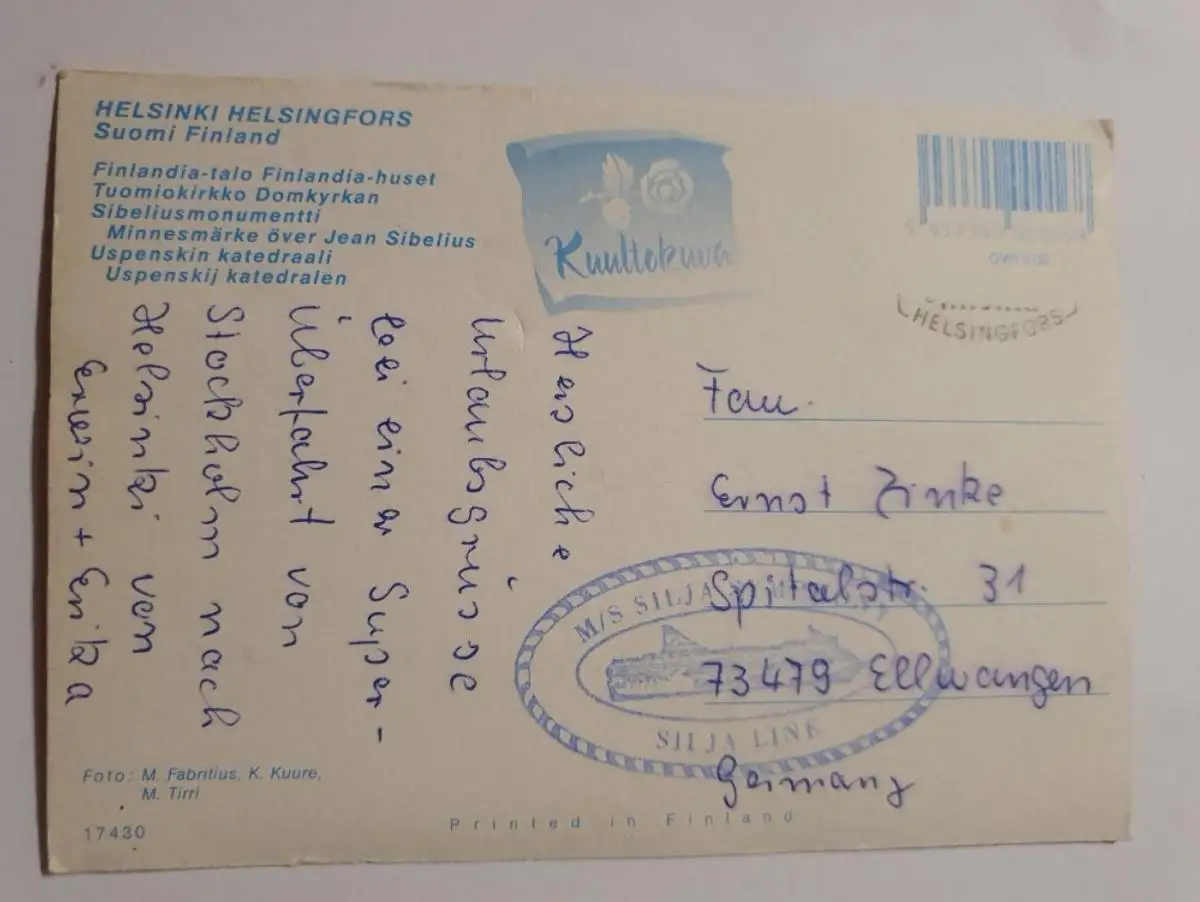 HELSINKI HELSINGFORS
Suomi Finland
Finlandia-talo Finlandia-huset
Tuomiokirkko Domkyrkan
Sibeliusmonumentti
Minnesmärke över Jean Sibelius
Uspenskin katedraali
Uspenskij katedralen
Kuultokuva
HELSINGFORS
Herzliche
Urlaubsgrüsse
bei einer Super-
Überfahrt von
Stockholm nach
Helsinki von
Erwin + Erika
Fam.
Ernst Zinke
Spitalstr. 31
73479 Ellwangen
Germany
M/S SILJA
SILJA LINE
Foto: M. Fabritius, K. Kuure,
M. Tirri
17430
Printed in Finland